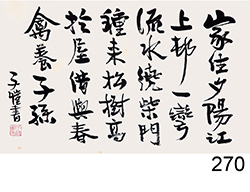 山家住夕陽江
上邨一彎
流水繞柴門
種来松樹高
於屋借與春
禽養子孫
子愷書
270